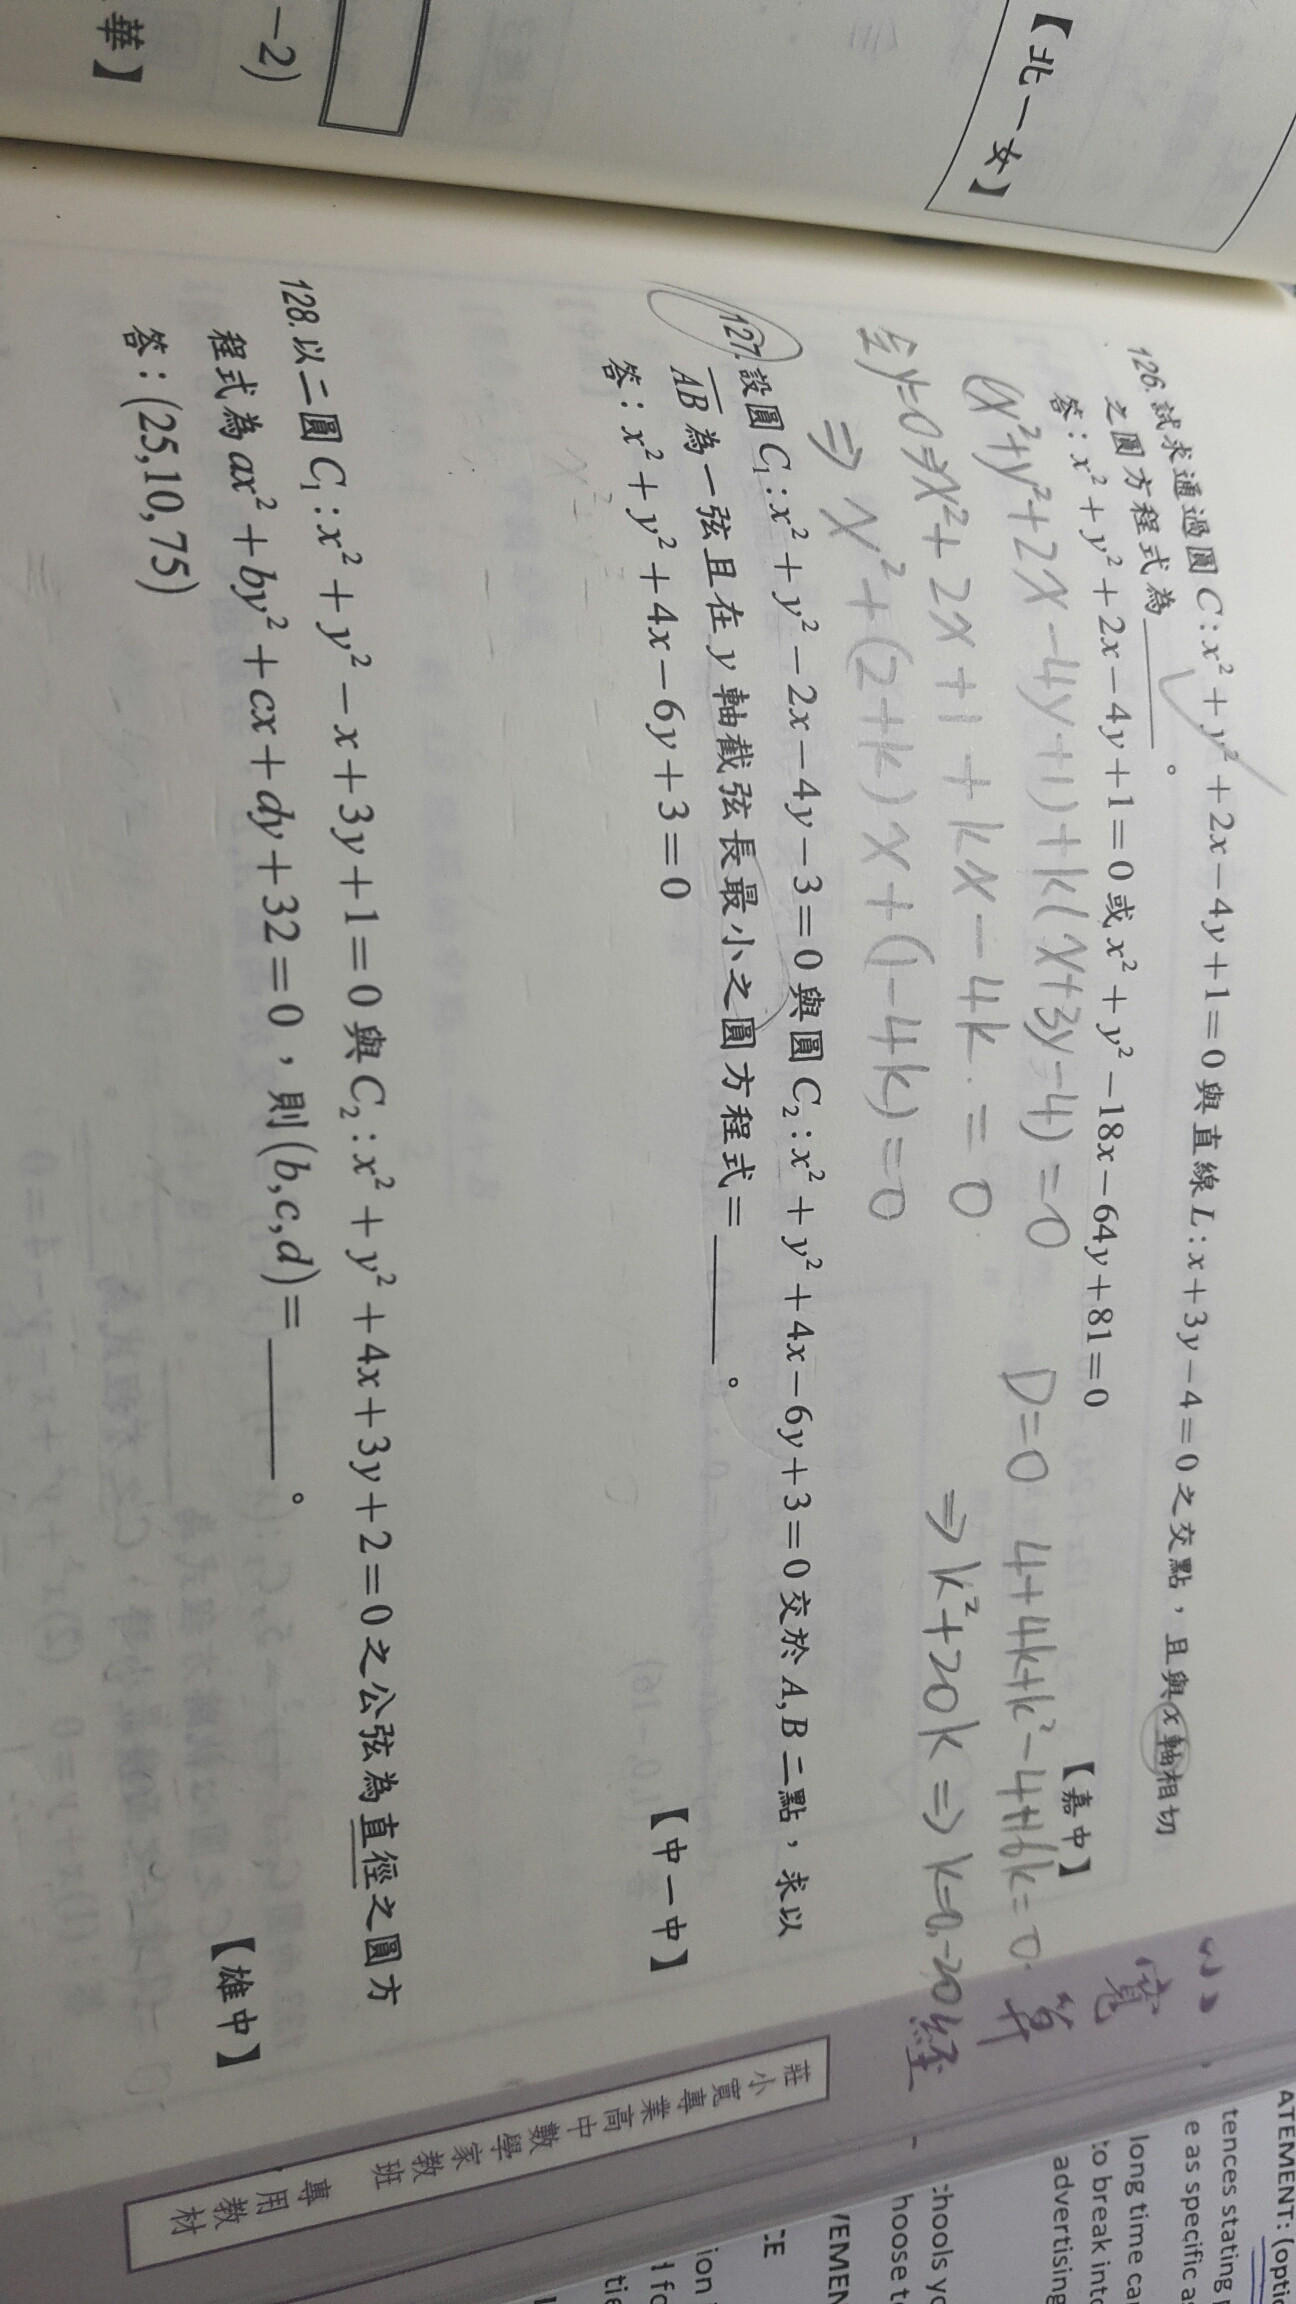 【北一女】
-2)
華】
126.試求通過圓C:x²+y²+2x-4y+1=0與直線L:x+3y-4=0之交點，且與x軸相切
之圓方程式為______。
【嘉中】
答:x²+y²+2x-4y+1=0或x²+y²-18x-64y+81=0
(x²+y²+2x-4y+1)+k(x+3y-4)=0
D=0 4+4k+k²-4+16k=0
y=0⇒x²+2x+1+kx-4k=0
⇒k²+20k⇒k=0,-20
⇒x²+(2+k)x+(1-4k)=0
127.設圓C₁:x²+y²-2x-4y-3=0與圓C₂:x²+y²+4x-6y+3=0交於A,B二點，求以
AB為一弦且在y軸截弦長最小之圓方程式=______。
【中一中】
答:x²+y²+4x-6y+3=0
128.以二圓C₁:x²+y²-x+3y+1=0與C₂:x²+y²+4x+3y+2=0之公弦為直徑之圓方
程式為ax²+by²+cx+dy+32=0，則(b,c,d)=______。
【雄中】
答:(25,10,75)
小
寬
算
經
莊小寬專業高中數學家教班
專用教材
ATEMENT: (optic
tences stating
e as specific a
long time ca
to break into
advertising
chools yo
hoose to
VEMEN
CE
ion
d fo
tie